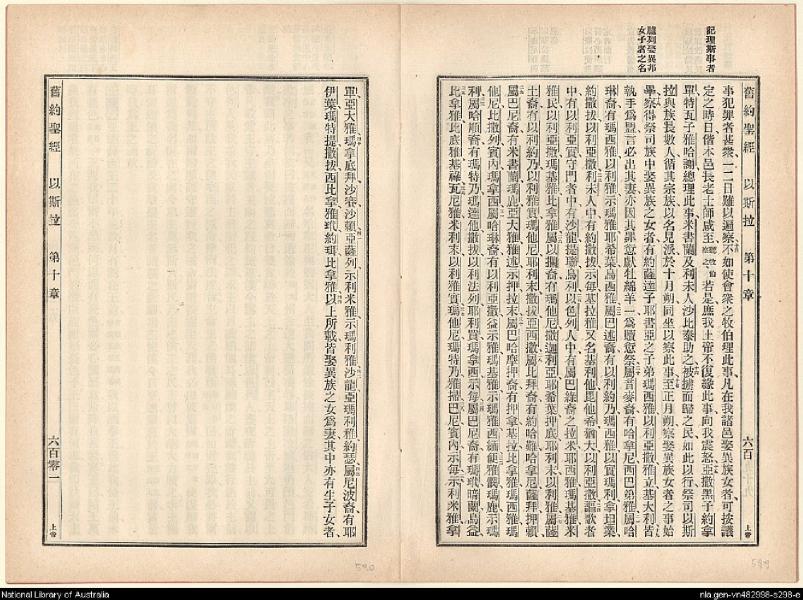 記理斯事者
臚列娶異邦
女子者之名
舊約聖經 以斯拉 第十章 六百 上帝
事犯罪者甚衆一二日難以遍察不如使會衆之牧伯理此事凡在我諸邑娶異族女者可按議
定之時日偕本邑長老士師咸至 若是應我上帝不復緣此事向我震怒亞撒黑子約拿
單特瓦子雅哈謝總理此事米書蘭及利未人沙比泰助之被擄而歸之民如此以行祭司以斯
拉與族長數人循其宗族以名見派於十月朔同坐以察此事至正月朔察娶異族女者之事始
畢察得祭司族中娶異族之女者有約薩達子耶書亞之子弟瑪西雅以利亞撒雅立基大利皆
執手爲盟言必出其妻亦因其罪意獻牡綿羊一爲贖愆祭屬音麥裔有哈拿尼西巴第雅屬哈
琳裔有瑪西雅以利雅示瑪雅耶希葉烏西雅屬巴述裔有以利約乃瑪西雅以實瑪利拿坦業
約撒拔以利亞撒利未人中有約撒拔示每基拉雅又名基利他毘他希猶大以利亞撒謳歌者
中有以利亞實守門者中有沙龍提聯烏利以色列人中有屬巴錄裔之拉米耶西雅瑪基雅米
雅民以利亞撒瑪基雅比拿雅屬以攔裔有瑪他尼撒迦利亞耶希葉押底耶利末以利雅屬薩
土裔有以利約乃以利雅實瑪他尼耶利末撒拔亞西撒屬比拜裔有約哈難哈拿尼薩拜押勒
屬巴尼裔有米書蘭瑪鹿亞大雅雅述示押拉末屬巴哈摩押裔有押拿基拉比拿雅瑪西雅瑪
他尼比撒列賓內瑪拿西屬哈琳裔有以利亞撒益示雅瑪基雅示瑪雅西緬便雅憫瑪鹿示瑪
利屬哈順裔有瑪特乃瑪達他撒拔以利法列耶利買瑪拿西示每屬巴尼裔有瑪玳暗蘭烏益
比拿雅比底雅基祿瓦尼雅米利末以利雅實瑪他尼瑪特乃雅掃巴尼賓內示每示利米雅拿
單亞大雅瑪拿底拜沙賽沙賴亞薩列示利米雅示瑪利雅沙龍亞瑪利雅約瑟屬尼波裔有耶
伊葉瑪特提撒拔西比拿雅玳約珥比拿雅以上所載皆娶異族之女爲妻其中亦有生子女者
舊約聖經 以斯拉 第十章 六百零一 上帝
590
National Library of Australia
nla.gen-vn482998-s298-e